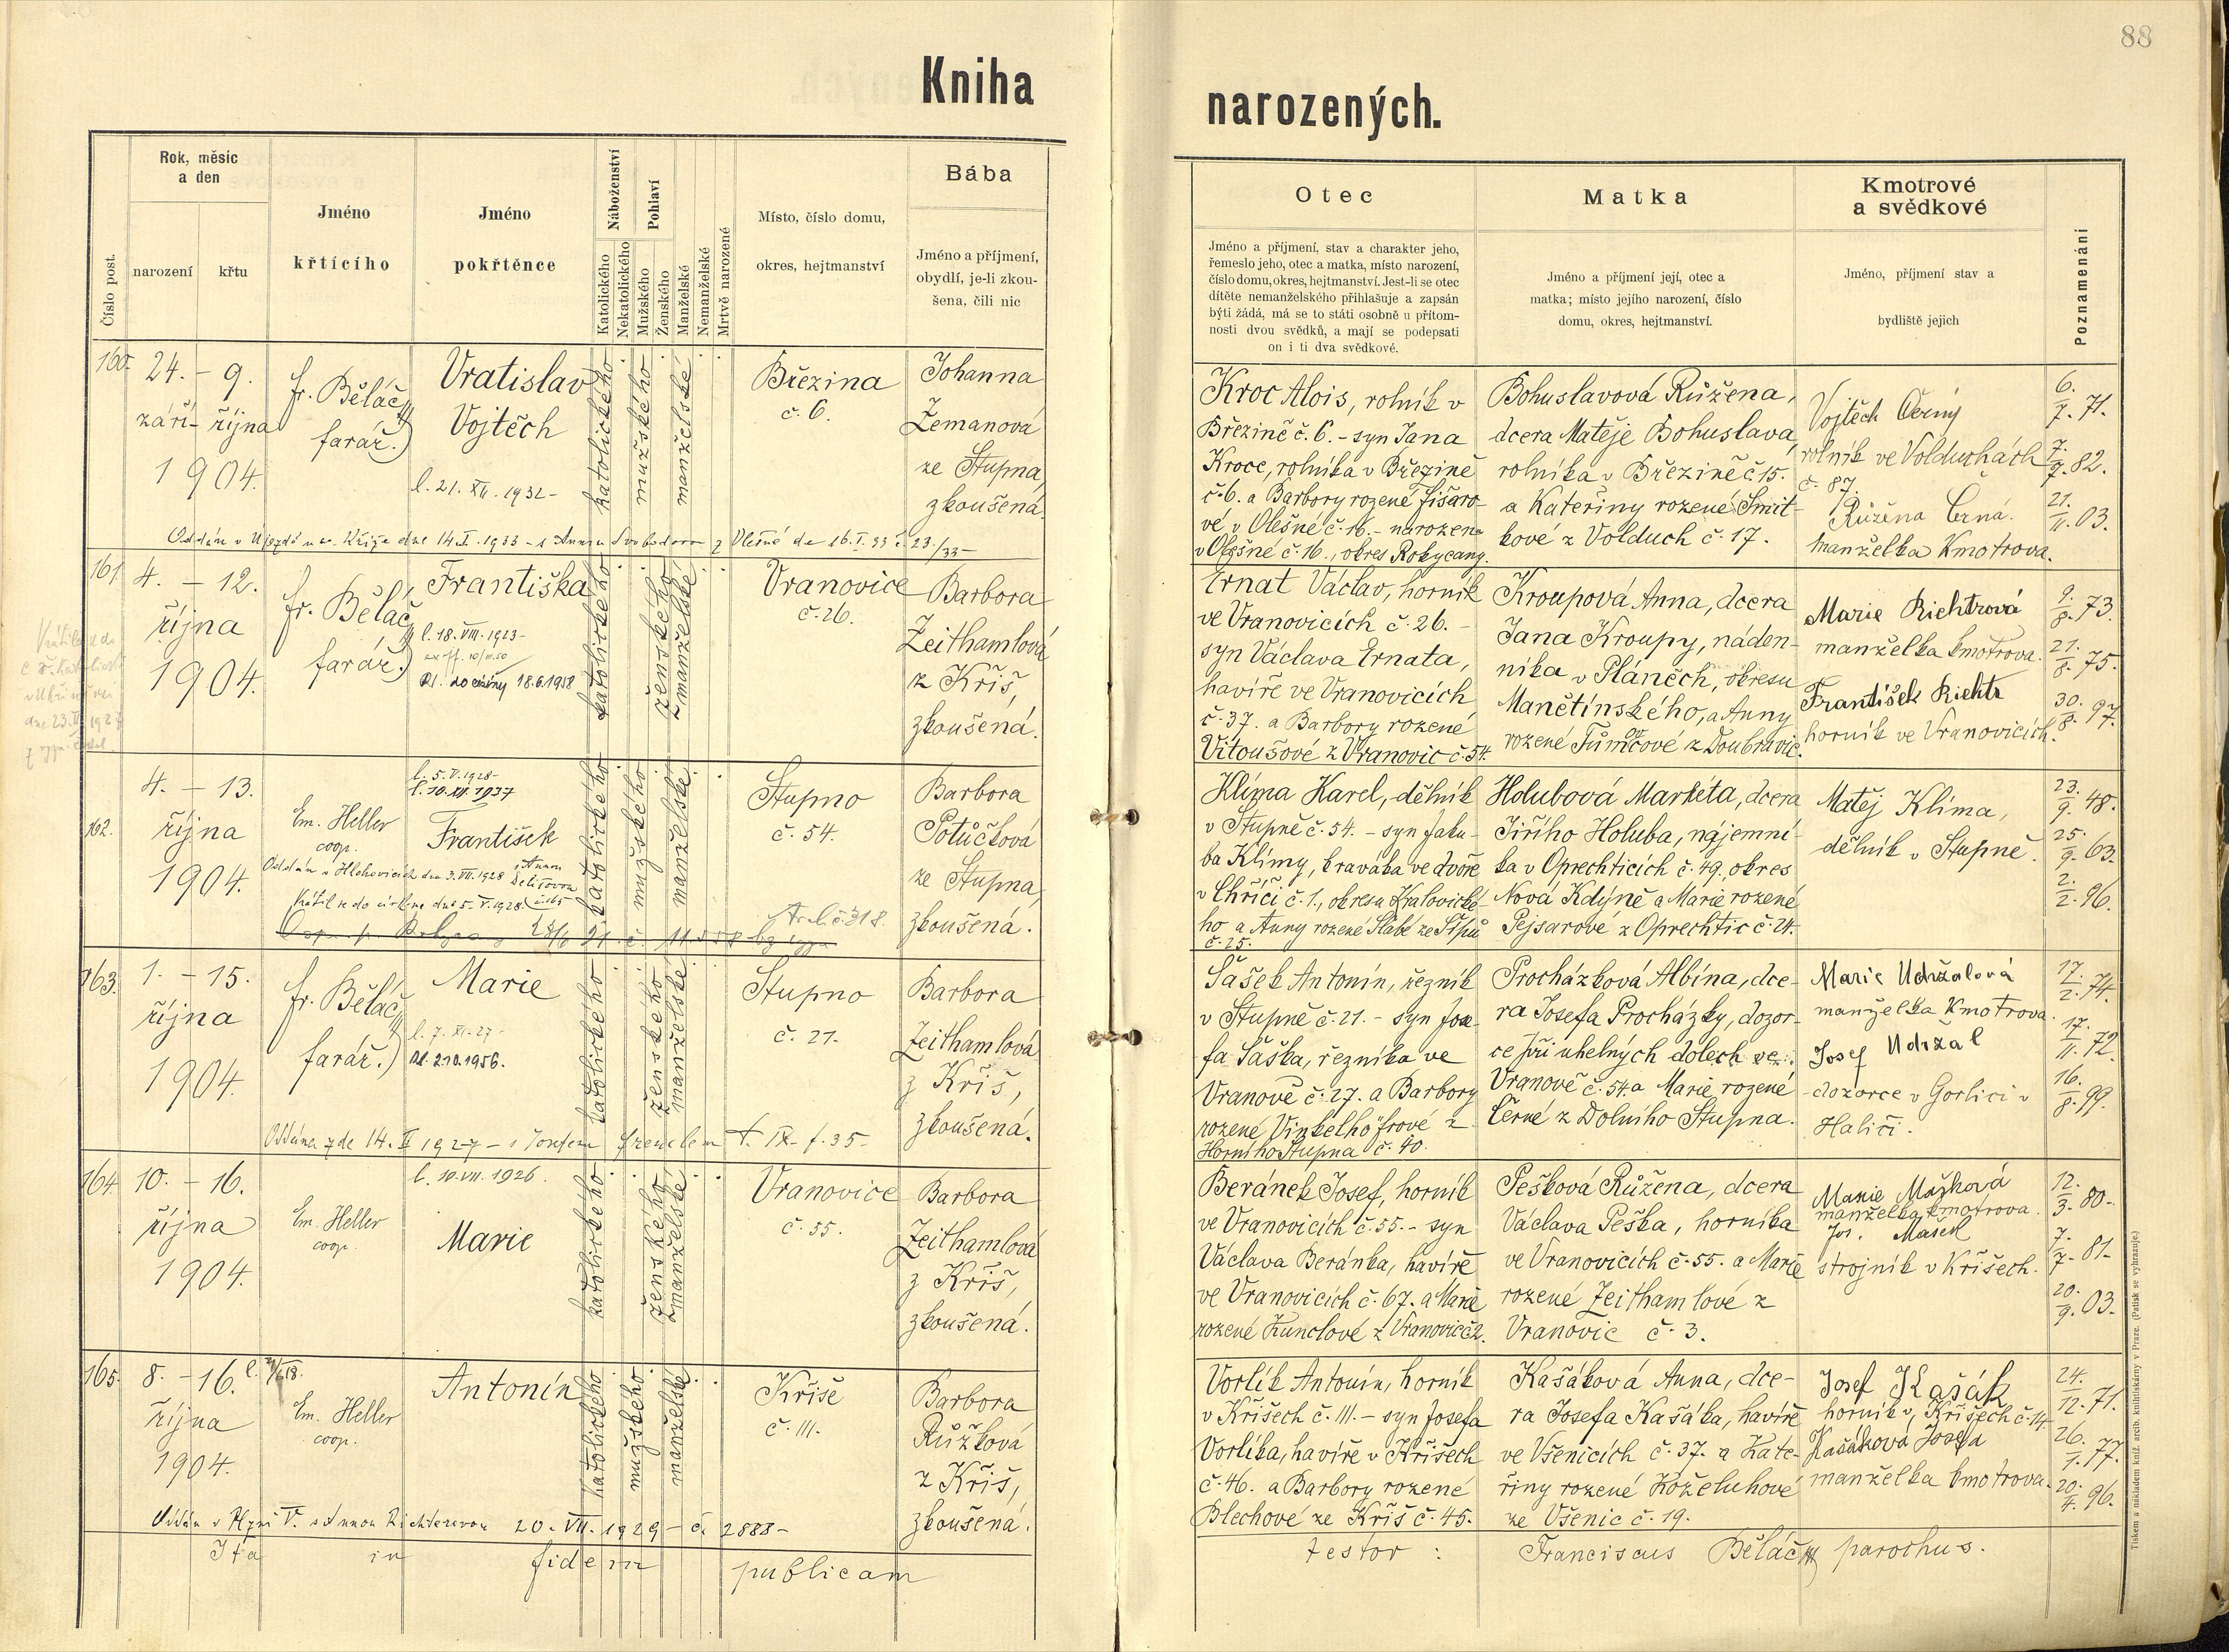 88
Kniha
narozených.
Číslo post.
Rok, měsíc
a den
narození
křtu
Jméno
křtícího
Jméno
pokřtěnce
Náboženství
Katolického
Nekatolického
Pohlaví
Mužského
Ženského
Manželské
Nemanželské
Mrtvě narozené
Místo, číslo domu,
okres, hejtmanství
Bába
Jméno a příjmení,
obydlí, je-li zkou-
šena, čili nic
Otec
Jméno a příjmení, stav a charakter jeho,
řemeslo jeho, otec a matka, místo narození,
číslo domu, okres, hejtmanství. Jest-li se otec
dítěte nemanželského přihlašuje a zapsán
býti žádá, má se to státi osobně u přítom-
nosti dvou svědků, a mají se podepsati
on i ti dva svědkové.
Matka
Jméno a příjmení její, otec a
matka; místo jejího narození, číslo
domu, okres, hejtmanství.
Kmotrové
a svědkové
Jméno, příjmení stav a
bydliště jejich
Poznamenání
160.
24. - 9.
září - října
1904.
fr. Běláč,
farář.
Vratislav
Vojtěch
l. 21. XII. 1932 -
katolického
mužského
manželské
Březina
č. 6.
Johanna
Zemanová
ze Stupna,
zkoušená.
Oddán v Újezdě u sv. Kříže dne 14.I.1933 - s Annou Svobodovou z Olešné de 16.I.33 č. 23/33 -
Kroc Alois, rolník v
Březině č. 6. - syn Jana
Kroce, rolníka v Březině
č. 6. a Barbory rozené Fišaro-
vé v Olešné č. 16. - narozen
v Olešné č. 16., okres Rokycany.
Bohuslavová Růžena,
dcera Matěje Bohuslava,
rolníka v Březině č. 15.
a Kateřiny rozené Smit-
kové z Volduch č. 17.
Vojtěch Černý
rolník ve Volduchách
č. 87.
Růžena Černá.
manželka kmotrova.
6./7. 71.
7./9. 82.
21./11. 03.
161
4. - 12.
října
1904.
fr. Běláč,
farář.
Františka
l. 18. VIII. 1923 -
Rl. do ciziny 18.6.1958
katolického
ženského
manželské
Vranovice
č. 26.
Barbora
Zeithamlová
z Kříš,
zkoušená.
Ernat Václav, horník
ve Vranovicích č. 26. -
syn Václava Ernata,
havíře ve Vranovicích
č. 37. a Barbory rozené
Vítoušové z Vranovic č. 54.
Kroupová Anna, dcera
Jana Kroupy, náden-
níka v Pláněch, okresu
Manětínského, a Anny
rozené Tůmové z Doubravic.
Marie Richtrová
manželka kmotrova.
František Richtr
horník ve Vranovicích.
9./8. 73.
21./8. 75.
30./8. 97.
162.
4. - 13.
října
1904.
Em. Heller
coop.
l. 5. V. 1928 -
l. 10. XII. 1937
František
katolického
mužského
manželské
Stupno
č. 54.
Barbora
Potůčková
ze Stupna,
zkoušená.
Oddán v Hlohovicích dne 3. VII. 1928 s Annou
Vrátil se do církve dne 5. V. 1928. č. 165
Klíma Karel, dělník
v Stupně č. 54. - syn Jaku-
ba Klímy, kraváka ve dvoře
v Chříči č. 1., okresu Kralovické-
ho a Anny rozené Slabé ze Šípů
č. 25.
Holubová Markéta, dcera
Jiřího Holuba, nájemní-
ka v Oprechticích č. 49., okres
Nová Kdýně a Marie rozené
Pejsarové z Oprechtic č. 24.
Matěj Klíma,
dělník v Stupně.
23./9. 48.
25./9. 63.
2./2. 96.
163.
1. - 15.
října
1904.
fr. Běláč,
farář.
Marie
l. 7. XI. 27 -
Rl. 2.10.1956.
katolického
ženského
manželské
Stupno
č. 21.
Barbora
Zeithamlová
z Kříš,
zkoušená.
Oddána zde 14. II 1927 - s Josefem Frenclem t. IX. f. 35 -
Šašek Antonín, řezník
v Stupně č. 21. - syn Jose-
fa Šaška, řezníka ve
Vranově č. 27. a Barbory
rozené Vinkelhöfrové z
Horního Stupna č. 40.
Procházková Albína, dce-
ra Josefa Procházky, dozor-
ce při uhelných dolech ve
Vranově č. 54. a Marie rozené
Černé z Dolního Stupna.
Marie Udržalová
manželka kmotrova.
Josef Udržal
dozorce v Gorlici v
Haliči.
17./2. 74.
17./11. 72.
16./8. 99.
164.
10. - 16.
října
1904.
Em. Heller
coop.
l. 10. VII. 1926.
Marie
katolického
ženského
manželské
Vranovice
č. 55.
Barbora
Zeithamlová
z Kříš,
zkoušená.
Beránek Josef, horník
ve Vranovicích č. 55. - syn
Václava Beránka, havíře
ve Vranovicích č. 67. a Marie
rozené Kunclové z Vranovic č. 2.
Pešková Růžena, dcera
Václava Peška, horníka
ve Vranovicích č. 55. a Marie
rozené Zeithamlové z
Vranovic č. 3.
Marie Mašková
manželka kmotrova.
Jos. Mašek
strojník v Kříšech.
12./3. 80 -
7./7. 81 -
20./9. 03.
165.
8. - 16.
října
1904.
Em. Heller
coop.
Antonín
katolického
mužského
manželské
Kříše
č. 111.
Barbora
Růžková
z Kříš,
zkoušená.
Oddán v Plzni V. s Annou Richterovou 20. VII. 1929 - č. 2888 -
Vorlík Antonín, horník
v Kříšech č. 111. - syn Josefa
Vorlíka, havíře v Kříšech
č. 46. a Barbory rozené
Blechové ze Kříš č. 45.
Kašáková Anna, dce-
ra Josefa Kašáka, havíře
ve Všenicích č. 37. a Kate-
řiny rozené Koželuhové
ze Všenic č. 19.
Josef Kašák
horník v Kříšech č. 14
Kašáková Josefa
manželka kmotrova.
24./12. 71.
26./1. 77.
20./4. 96.
Ita in fidem publicam
testor : Franciscus Běláč parochus.
Tiskem a nákladem kníž. arcib. knihtiskárny v Praze. (Patisk se vyhrazuje.)